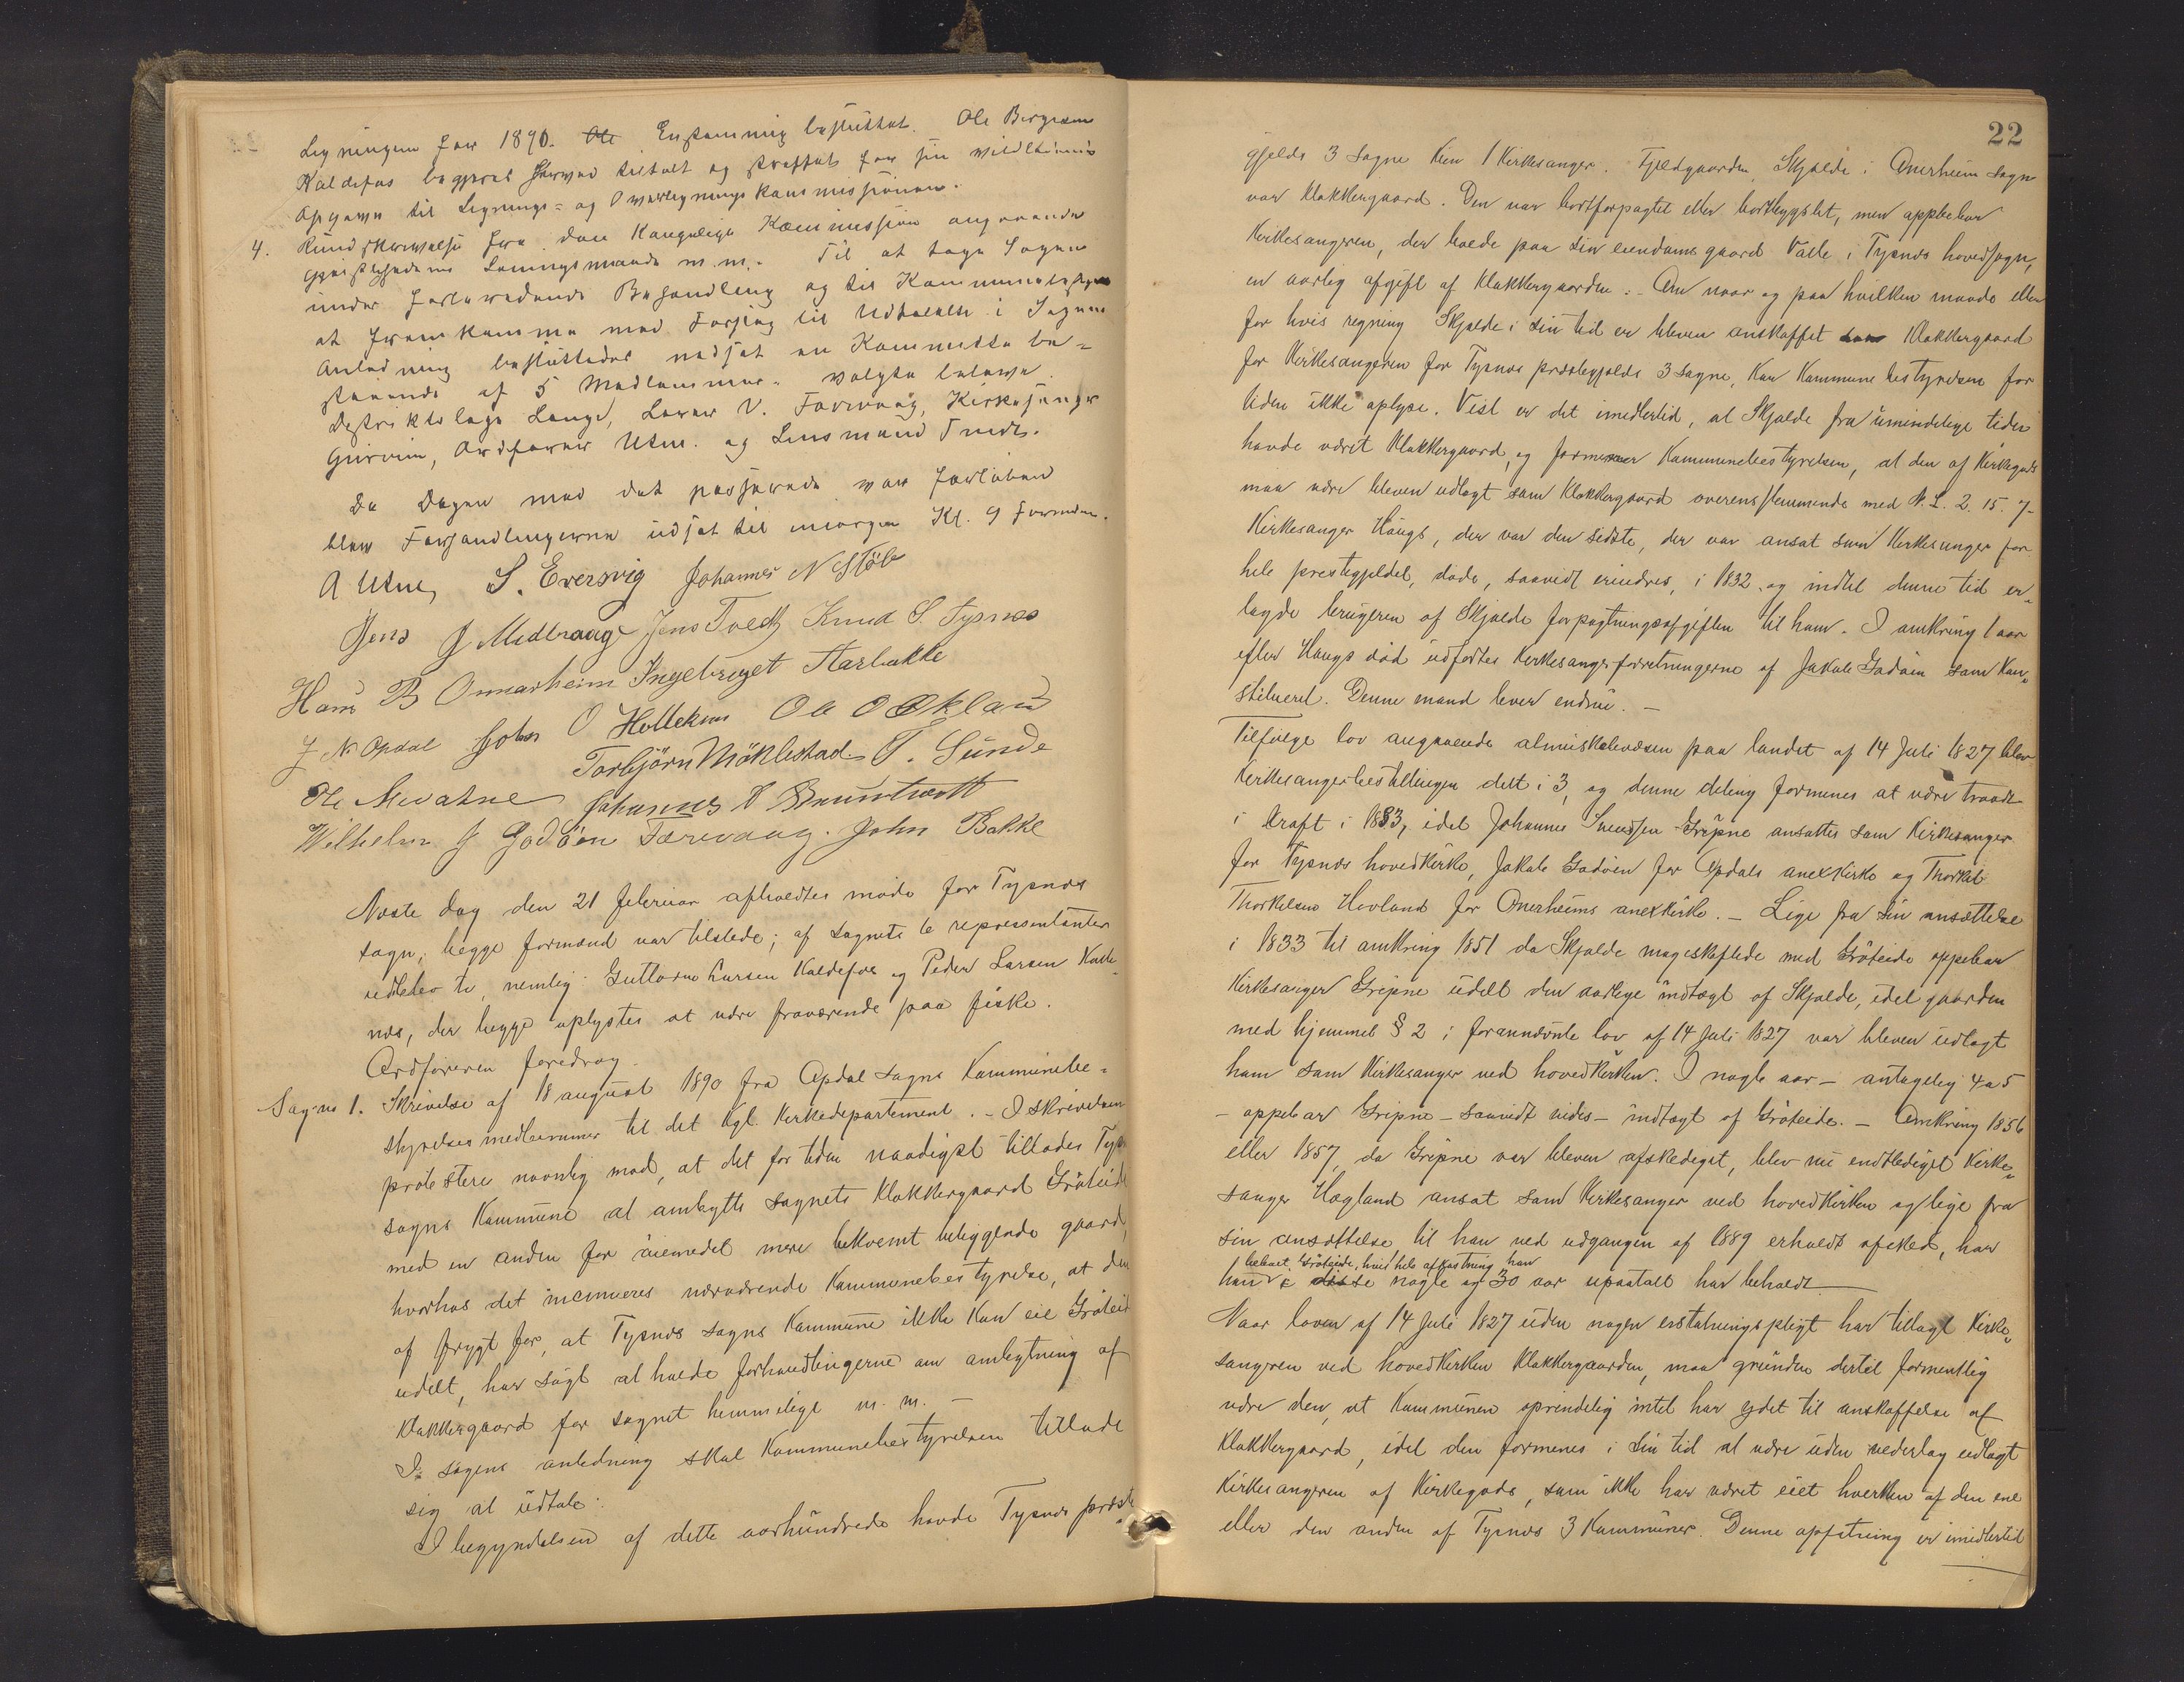 Ligningen for 1890. Enstemmig besluttet. Ole Birgersen
Kaldefos begjæres herved tiltalt og straffet for sin vildledende
Opgave til Lignings- og Overligningskommissionen.
4. Rundskrivelse fra den Kongelige Kommission angaaende
Gjeistlighedens Lønningsmaade m.m. Til at tage Sagen
under forberedende Behandling og til Kommunestyret
at fremkomme med Forslag til Udtalelse i Sagens
Anledning besluttedes nedsat en Kommitte be-
staaende af 5 Medlemmer. Valgte bleve
Distriktslæge Lange, Lærer V. Færevaag, Kirkesanger
Gjerven, Ordfører Utne og Lensmand Tvedt.
Da Dagen med det passerede var forløben
blev Forhandlingerne udsat til imorgen Kl. 9 Formdm.
A Utne, S. Eversvig Johannes N Støle
Jens J Midtvaage Jens Tvedt Knud S. Tysnes
Hans B Onnarheim Ingebrigt Aarbakke
J N Opdal John O Hollekim Ole O Økland
Torbjörn Möklestad T. Sunde
Ole Mevatne Johannes
Wilhelm J Godöen Færevaag. John Bakke
Næste dag den 21 februar afholdtes møde for Tysnæs
sogn; begge formænd var tilstede; af sognets 6 repræsentanter
udeblev to, nemlig: Guttorm Larsen Kaldefos og Peder Larsen
næs, der begge oplystes at være fraværende paa fiske.
Ordføreren foredrog.
Sag no 1. Skrivelse af 18 august 1890 fra Opdal sogns Kommunebe-
styrelsesmedlemmer til det Kgl. Kirkedepartement. - I skrivelsen
protestere navnlig mod, at det for tiden naadigst tillades Tysnæs
sogns Kommune at ombytte sognets Klokkergaard Gröteide
med en anden for øiemedet mere bekvemt beliggende gaard,
hvorhos det insinueres nærværende Kommunebestyrelse, at den
af frygt for, at Tysnæs sogns Kommune ikke kan eie Gröteide
udelt, har søgt at holde forhandlingerne om ombytning af
Klokkergaard for sognet hemmelige m. m. -
I sagens anledning skal Kommunebestyrelsen tillade
sig at udtale:
I begyndelsen af dette aarhundrede havde Tysnæs præste-
22
gjelds 3 sogne kun 1 Kirkesanger. Fjeldgaarden Skjælde i Onerheim sogn
var Klokkergaard. Den var bortforpagtet eller bortbygslet, men oppebar
Kirkesangeren, der boede paa sin eiendomsgaard Vaile i Tysnæs hovedsogn,
en aarlig afgift af Klokkergaarden. - Om naar og paa hvilken maade eller
for hvis regning Skjælde i sin tid er bleven anskaffet Klokkergaard
for Kirkesangeren for Tysnæs præstegjelds 3 sogne, kan Kommunebestyrelsen for
tiden ikke oplyse. Vist er det imedlertid, at Skjælde fra umindelige tider
havde været Klokkergaard, og formener Kommunebestyrelsen, at den af Kirkegods
maa være bleven udlagt som Klokkergaard overensstemmende med N. L. 2. 15. 7-
Kirkesanger Haugs, der var den sidste, der var ansat som Kirkesanger for
hele prestegjeldet, døde, saavidt erindres, i 1832 og indtil denne tid er-
lagde brugeren af Skjælde forpagtningsafgiften til ham. I omkring 1 aar
efter Haugs død udførtes Kirkesangerforretningerne af Jakob Godøen som kon-
stitueret. Denne mand lever endnu. -
Tilfølge lov angaaende almueskolevæsen paa landet af 14 Juli 1827 blev
Kirkesangerbestillingen delt i 3, og denne deling formenes at være traadt
i kraft i 1833, idet Johannes Svendsen Gripne ansattes som Kirkesanger
for Tysnæs hovedkirke, Jakob Godøen for Opdals anexkirke og Thorkel
Thorkelsen Hovland for Onerheims anexkirke. - Lige fra sin ansættelse
i 1833 til omkring 1851 da Skjælde mageskiftede med Gröteide oppebar
Kirkesanger Gripne udelt den aarlige indtægt af Skjælde, idet gaarden
med hjemmel § 2 i forannævnte lov af 14 Juli 1827 var bleven udlagt
ham som Kirkesanger ved hovedkirken. I nogle aar - antagelig 4 a 5
- oppebar Gripne - saavidt vides - indtægt af Gröteide. - Omkring 1856
eller 1857, da Gripne var bleven afskediget, blev nu endtlediget Kirke-
sanger Hegland ansat som Kirkesanger ved hovedkirken og lige fra
sin ansættelse til han ved udgangen af 1889 erholdt afsked, har
beboet Gröteide, hvis hele afkastning han
han i disse nogle og 30 aar upaatalt har beholdt
Naar loven af 14 Juli 1827 uden nogen erstatningspligt har tillagt Kirke-
sangeren ved hovedkirken Klokkergaarden, maa grunden dertil formentlig
være den, at Kommunen oprindelig intet har ydet til anskaffelse af
Klokkergaard, idet den formenes i sin tid at være uden vederlag udlagt
Kirkesangeren af Kirkegods, som ikke har været eiet hverken af den ene
eller den anden af Tysnæs 3 Kommuner. Denne opfatning er imidlertid